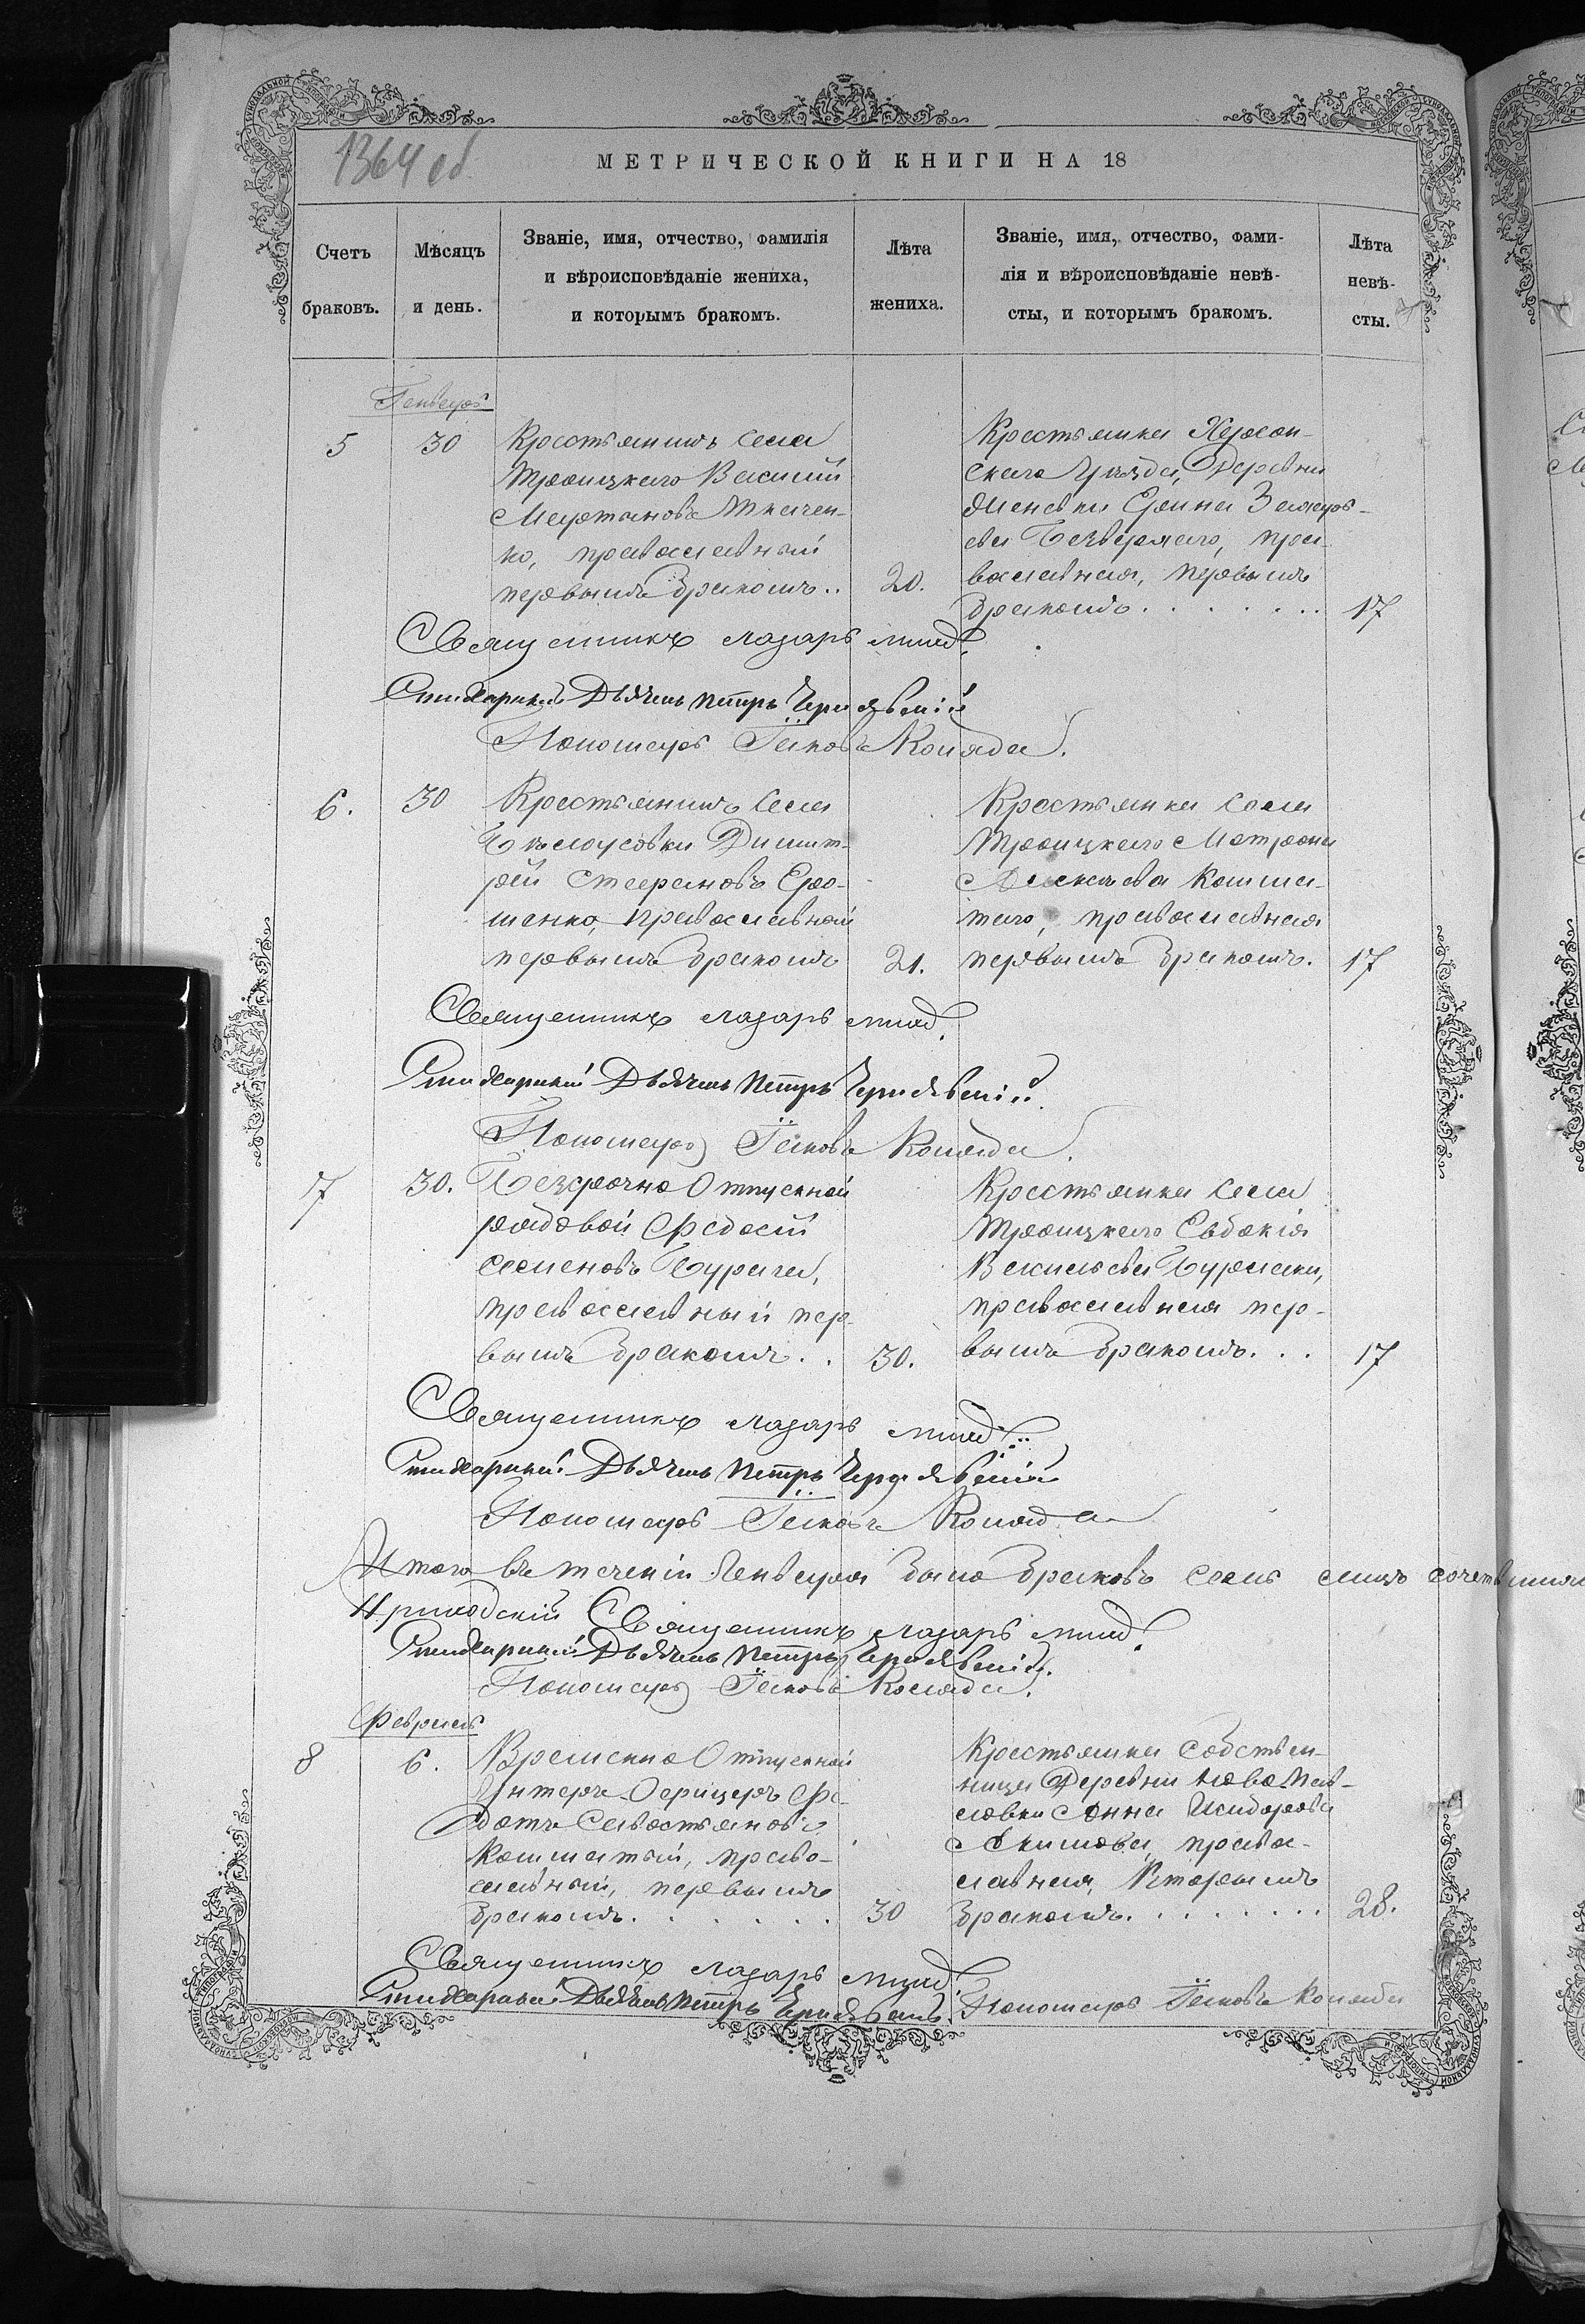 1364 об
МЕТРИЧЕСКОЙ КНИГИ НА 18
Счетъ браковъ.
Мѣсяцъ и день.
Званіе, имя, отчество, фамилія
и вѣроисповѣданіе жениха,
и которымъ бракомъ.
Лѣта жениха.
Званіе, имя, отчество, фами-
лія и вѣроисповѣданіе невѣ-
сты, и которымъ бракомъ.
Лѣта невѣ-
сты.
Генварь
5
30
Крестьянинъ села
Троицкаго Василій
Мартыновъ Ткачен-
ко, православный
первымъ бракомъ..
20.
Крестьянка Херсон-
скаго Уѣзда, Деревни
Еленовки Ерина Захарь-
ева Безверхаго, пра-
вославная, первымъ
бракомъ.......
17
Священникъ Лазарь
Стихарный Дьячекъ Петръ Чернявскій
Пономарь Іаковъ Коляда.
6.
30
Крестьянинъ села
Бѣлоусовки Димит-
рій Стефановъ Еро-
шенко, православный
первымъ бракомъ
21.
Крестьянка села
Троицкаго Матрона
Алексѣева Кошма-
таго, православная
первымъ бракомъ.
17
Священникъ Лазарь
Стихарный Дьячекъ Петръ Чернявскій
Пономарь Іаковъ Коляда.
7
30.
Безсрочно Отпускной
рядовой Федосій
Семеновъ Бурлача,
православный пер-
вымъ бракомъ..
30.
Крестьянка села
Троицкаго Евдокія
Васильева Бурлаки,
православная пер-
вымъ бракомъ...
17
Священникъ Лазарь
Стихарный Дьячекъ Петръ Чернявскій
Пономарь Іаковъ Коляда
Итого въ теченіи Генваря было браковъ семь лицъ
Приходскій Священникъ Лазарь
Стихарный Дьячекъ Петръ Чернявскій.
Пономарь Іаковъ Коляда.
Февраль
8
6.
Временно Отпускной
Унтеръ-Офицеръ Фе-
дотъ Севастьяновъ
Кошматый, право-
славный, первымъ
бракомъ.......
30
Крестьянка собствен-
ница Деревни Ново-Пав-
ловки Анна Исидорова
Акимова, право-
славная, Вторымъ
бракомъ........
28.
Священникъ Лазарь
Стихарный Дьячекъ Петръ Чернявскій. Пономарь Іаковъ Коляда